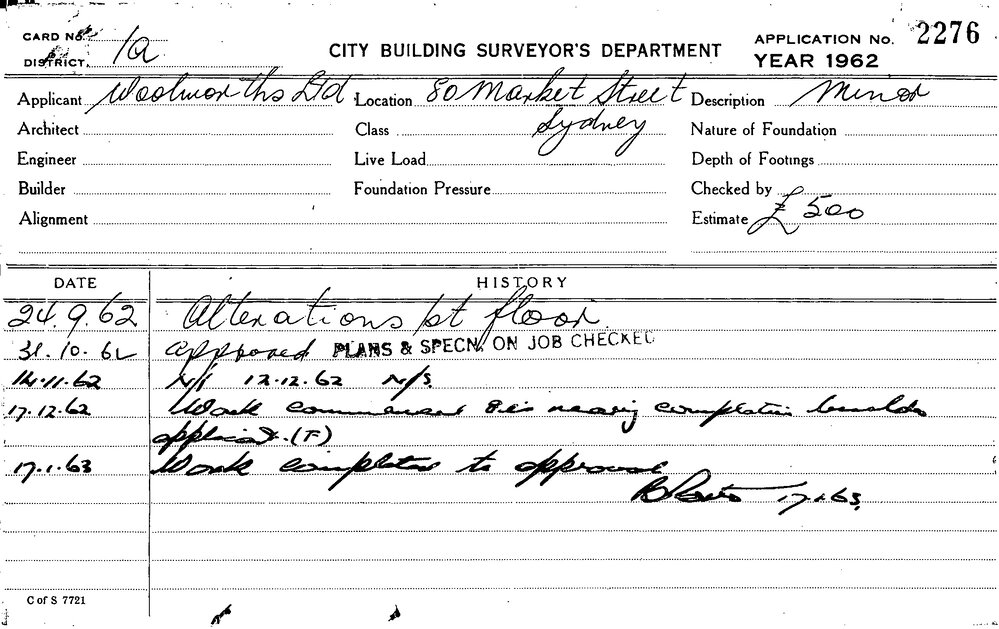 CARD No.
DISTRICT. 1a
CITY BUILDING SURVEYOR'S DEPARTMENT
APPLICATION No. 2276
YEAR 1962
Applicant Woolworths Ltd Location 80 Market Street Description Minor
Architect Class Sydney Nature of Foundation
Engineer Live Load Depth of Footings
Builder Foundation Pressure Checked by
Alignment Estimate £500
DATE HISTORY
24.9.62 Alterations 1st floor
31.10.62 Approved PLANS & SPECN. ON JOB CHECKED
14.11.62 N/S 12.12.62 N/S.
17.12.62 Work commenced & is nearing completion
applicat. (F)
17.1.63 Work completed to approval
17.1.63.
C of S 7721